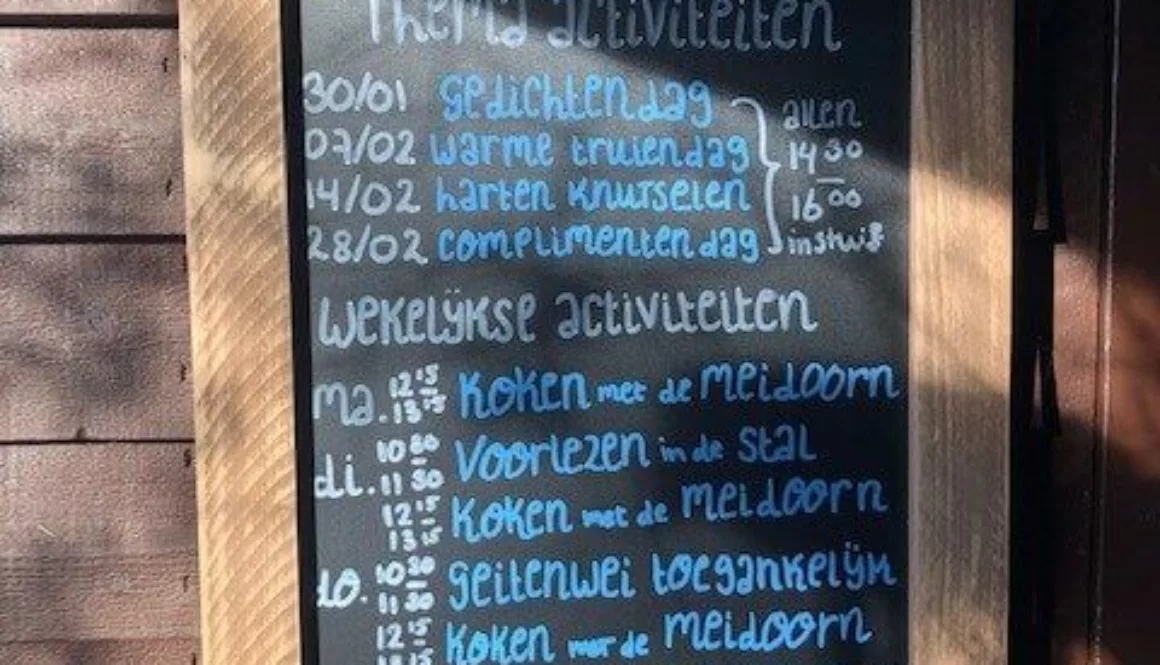 Thema activiteiten
30/01 gedichtendag
07/02 warme truiendag
14/02 harten knutselen
28/02 complimentendag
allen
14 30
16 00
instuif
Wekelijkse activiteiten
ma. 12 15 - 13 15 Koken met de Meidoorn
di. 10 30 - 11 30 Voorlezen in de Stal
12 15 - 13 15 Koken met de Meidoorn
do. 10 30 - 11 30 geitenwei toegankelijk
12 15 Koken met de Meidoorn